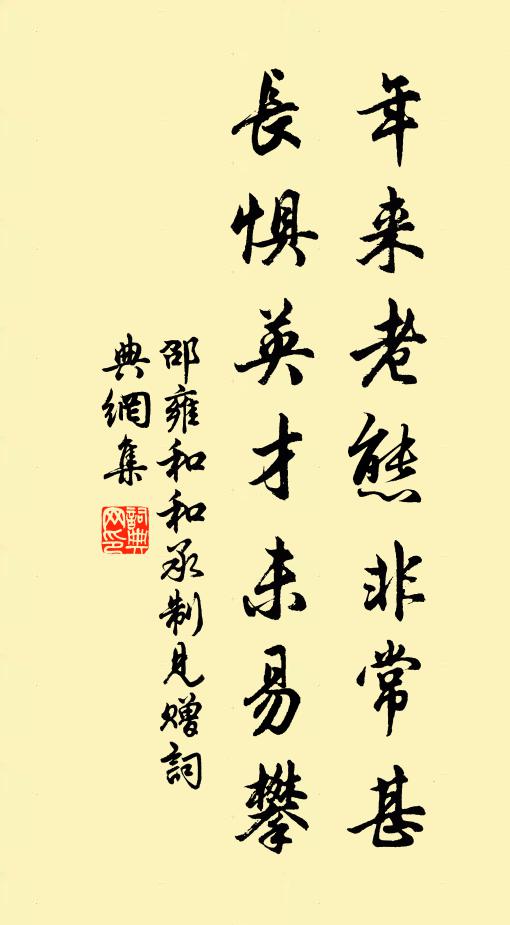 年来老態非常甚
長惧英才未易攀
邵雍和和承制見贈詞
典網集
詞典网印